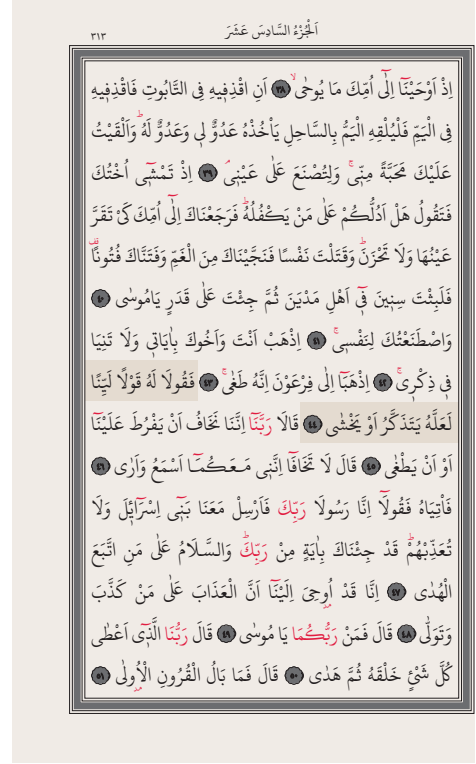 اَلْجُزْءُ السَّادِسَ عَشَرَ
٣١٣
اِذْ اَوْحَيْنَٓا اِلٰٓى اُمِّكَ مَا يُوحٰىۙ ٣٨ اَنِ اقْذِفِيهِ فِي التَّابُوتِ فَاقْذِفِيهِ
فِي الْيَمِّ فَلْيُلْقِهِ الْيَمُّ بِالسَّاحِلِ يَأْخُذْهُ عَدُوٌّ لِي وَعَدُوٌّ لَهُۜ وَاَلْقَيْتُ
عَلَيْكَ مَحَبَّةً مِنِّيۚ وَلِتُصْنَعَ عَلٰى عَيْنِيۢ ٣٩ اِذْ تَمْشِٓي اُخْتُكَ
فَتَقُولُ هَلْ اَدُلُّكُمْ عَلٰى مَنْ يَكْفُلُهُۜ فَرَجَعْنَاكَ اِلٰٓى اُمِّكَ كَيْ تَقَرَّ
عَيْنُهَا وَلَا تَحْزَنَۜ وَقَتَلْتَ نَفْسًا فَنَجَّيْنَاكَ مِنَ الْغَمِّ وَفَتَنَّاكَ فُتُونًا۠
فَلَبِثْتَ سِنِينَ فِٓي اَهْلِ مَدْيَنَ ثُمَّ جِئْتَ عَلٰى قَدَرٍ يَامُوسٰى ٤٠
وَاصْطَنَعْتُكَ لِنَفْسِيۚ ٤١ اِذْهَبْ اَنْتَ وَاَخُوكَ بِاٰيَاتِي وَلَا تَنِيَا
فِي ذِكْرِيۚ ٤٢ اِذْهَبَٓا اِلٰى فِرْعَوْنَ اِنَّهُ طَغٰىۚ ٤٣ فَقُولَا لَهُ قَوْلًا لَيِّنًا
لَعَلَّهُ يَتَذَكَّرُ اَوْ يَخْشٰى ٤٤ قَالَا رَبَّنَٓا اِنَّنَا نَخَافُ اَنْ يَفْرُطَ عَلَيْنَٓا
اَوْ اَنْ يَطْغٰى ٤٥ قَالَ لَا تَخَافَٓا اِنَّنِي مَعَكُمَٓا اَسْمَعُ وَاَرٰى ٤٦
فَأْتِيَاهُ فَقُولَٓا اِنَّا رَسُولَا رَبِّكَ فَاَرْسِلْ مَعَنَا بَنِٓي اِسْرَٓائِلَ وَلَا
تُعَذِّبْهُمْۜ قَدْ جِئْنَاكَ بِاٰيَةٍ مِنْ رَبِّكَۜ وَالسَّلَامُ عَلٰى مَنِ اتَّبَعَ
الْهُدٰى ٤٧ اِنَّا قَدْ اُوحِيَ اِلَيْنَٓا اَنَّ الْعَذَابَ عَلٰى مَنْ كَذَّبَ
وَتَوَلّٰى ٤٨ قَالَ فَمَنْ رَبُّكُمَا يَا مُوسٰى ٤٩ قَالَ رَبُّنَا الَّذِٓي اَعْطٰى
كُلَّ شَيْءٍ خَلْقَهُ ثُمَّ هَدٰى ٥٠ قَالَ فَمَا بَالُ الْقُرُونِ الْاُولٰى ٥١